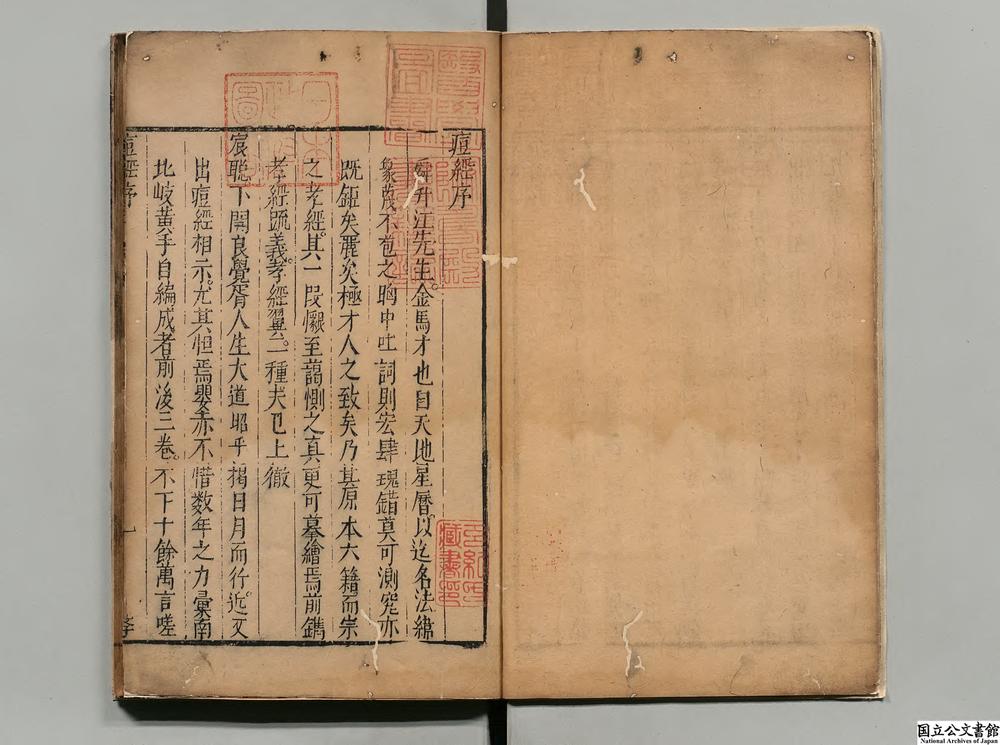 痘經序
舜升江先生金馬才也自天地星曆以迄名法緯
象蔑不苞之胸中吐詞則宏肆瑰錯莫可測窕亦
既鉅矣麗矣極才人之致矣乃其原本六籍而崇
之孝經其一段懇至藹惻之真更可摹繪焉前鐫
孝經疏義孝經翼二種夫已上徹
宸聰下開良覺胥人生大道昭乎揭日月而行近又
出痘經相示尤其怛焉嬰赤不惜数年之力彙南
北岐黃手自編成者前後三卷不下十餘萬言嗟
痘經序
一
日本
圖
藏書印
国立公文書館
National Archives of Japan